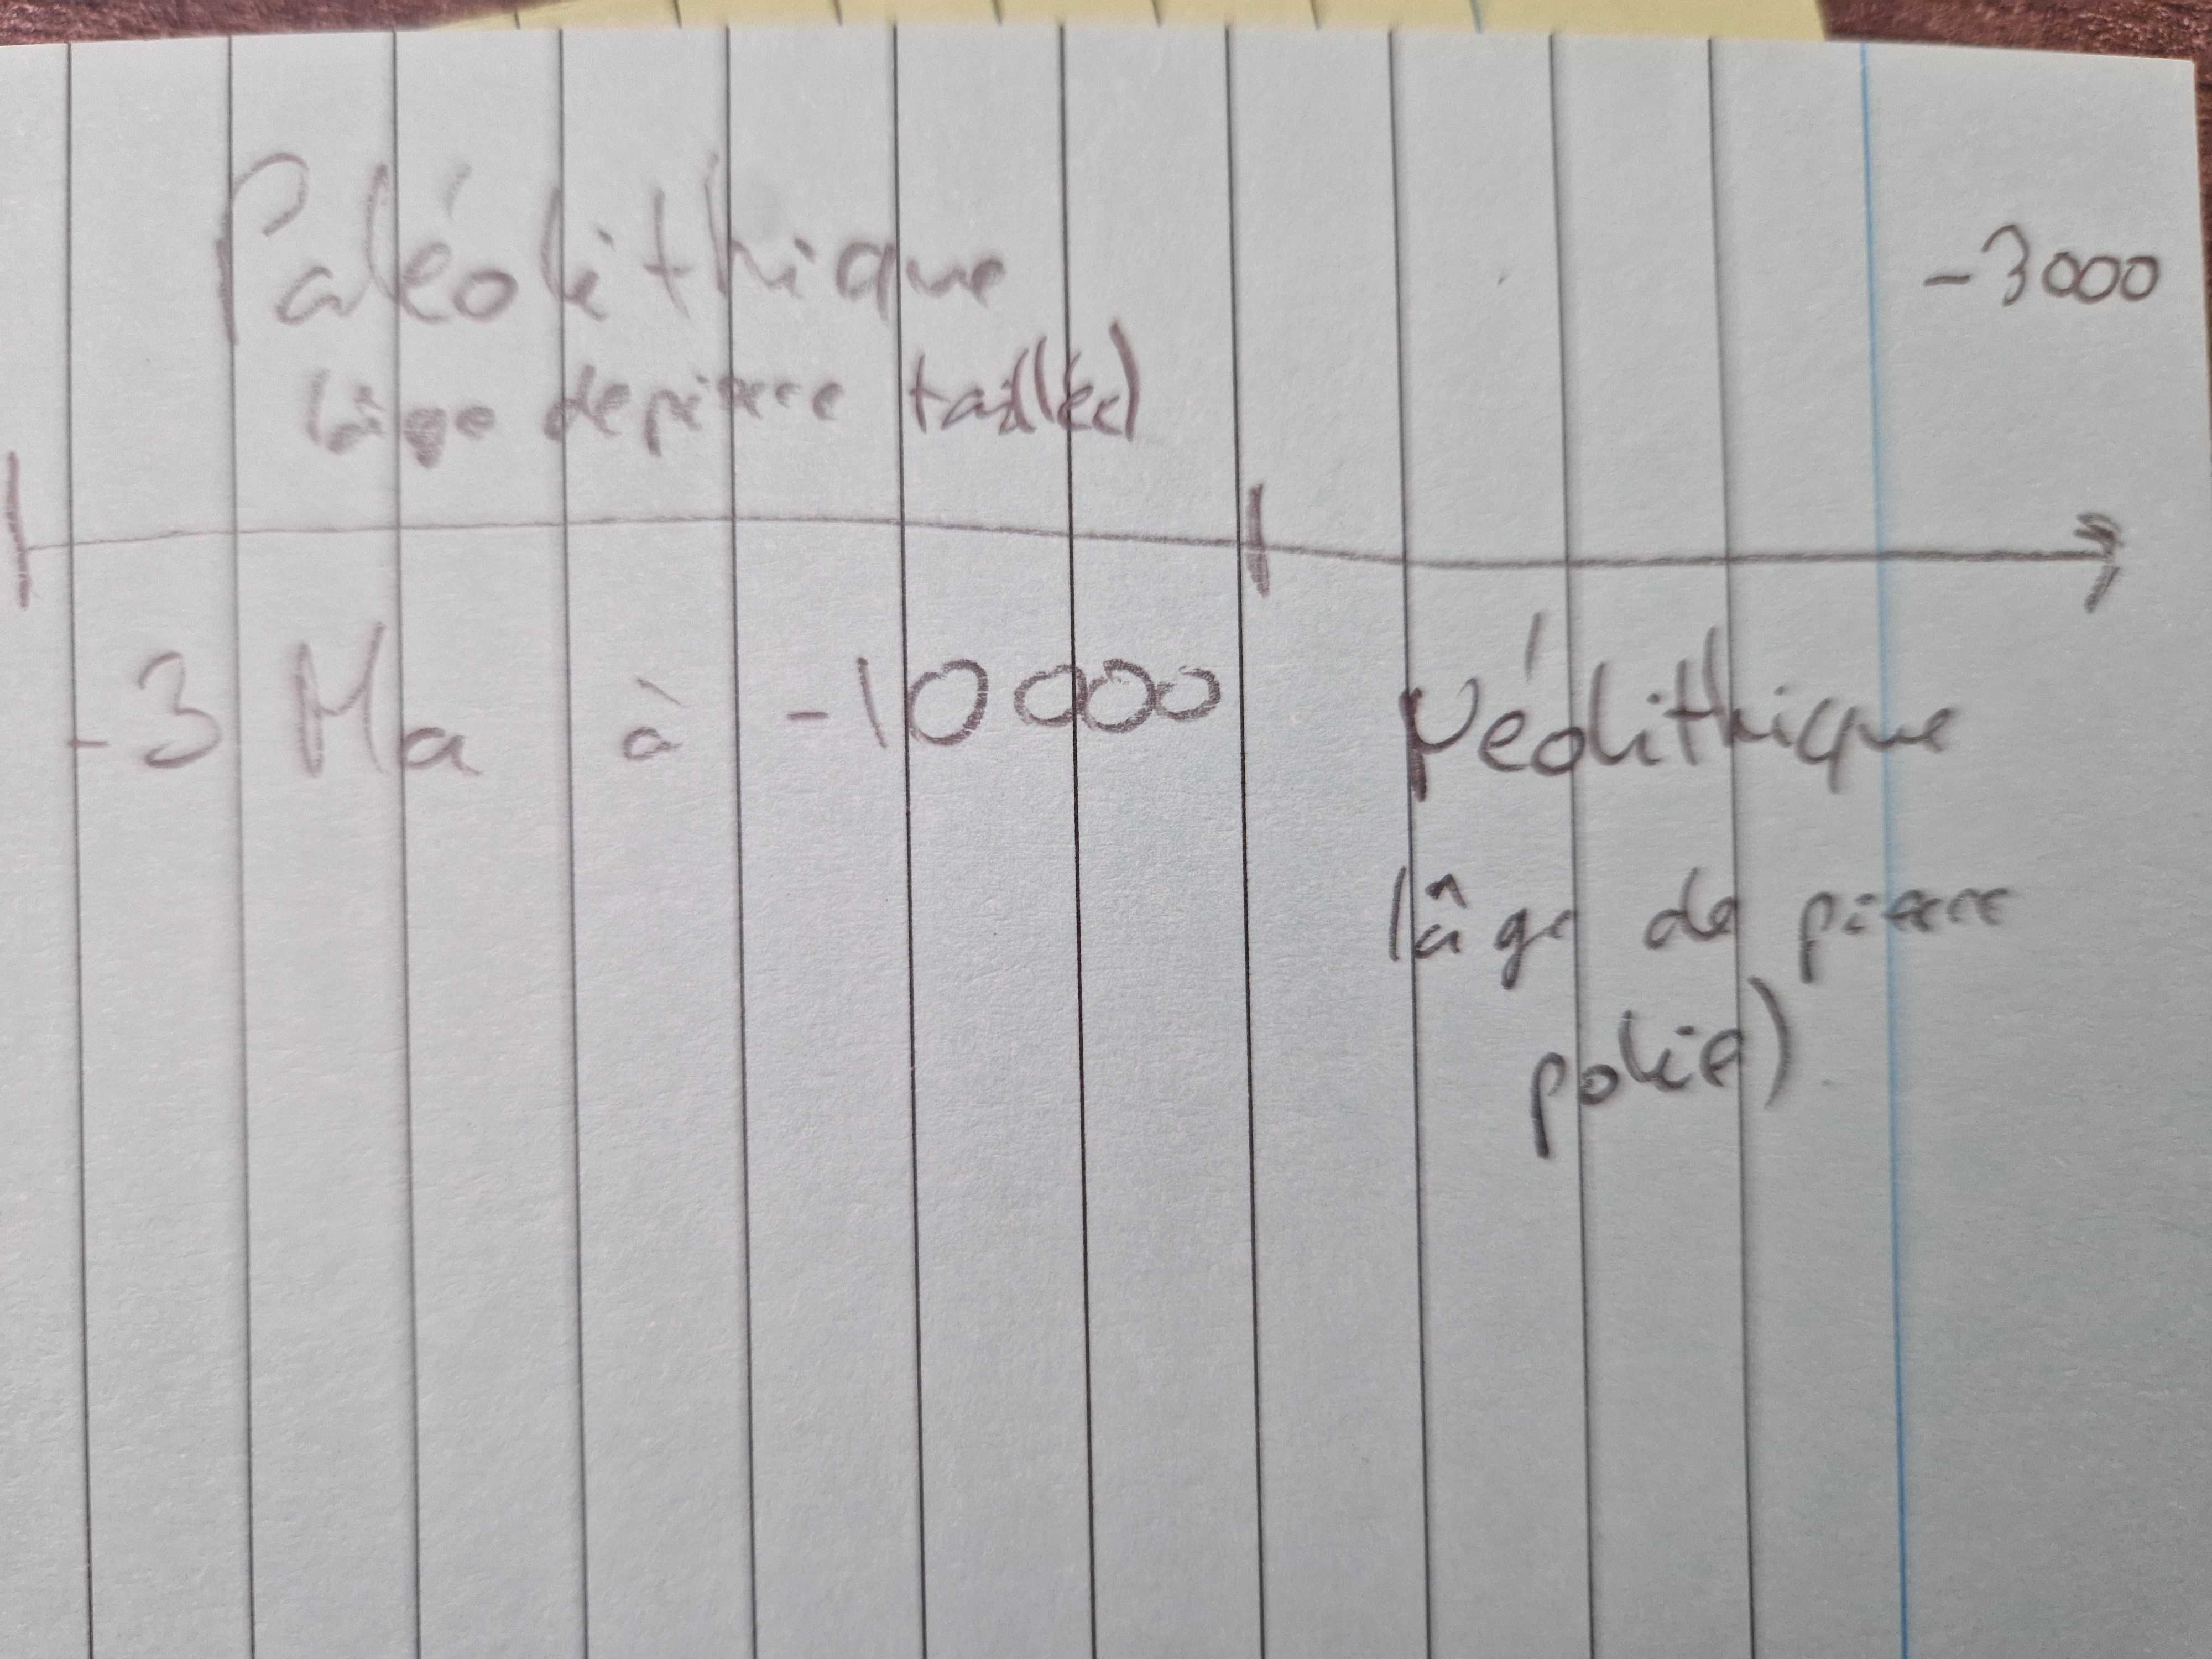 Paléolithique
(âge de pierre taillée)
-3000
-3 Ma à -10 000
Néolithique
(âge de pierre
polie)